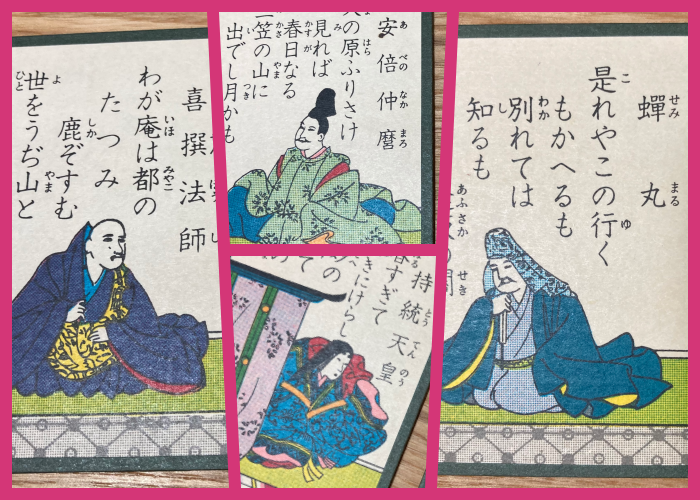 喜撰法師
わが庵は都の
たつみ
鹿ぞすむ
世をうぢ山と
ひと
安倍仲麿
の原ふりさけ
見れば
春日なる
笠の山に
出でし月かも
持統天皇
春すぎて
きにけらし
の
て
蟬丸
是れやこの行く
もかへるも
別れては
知るも